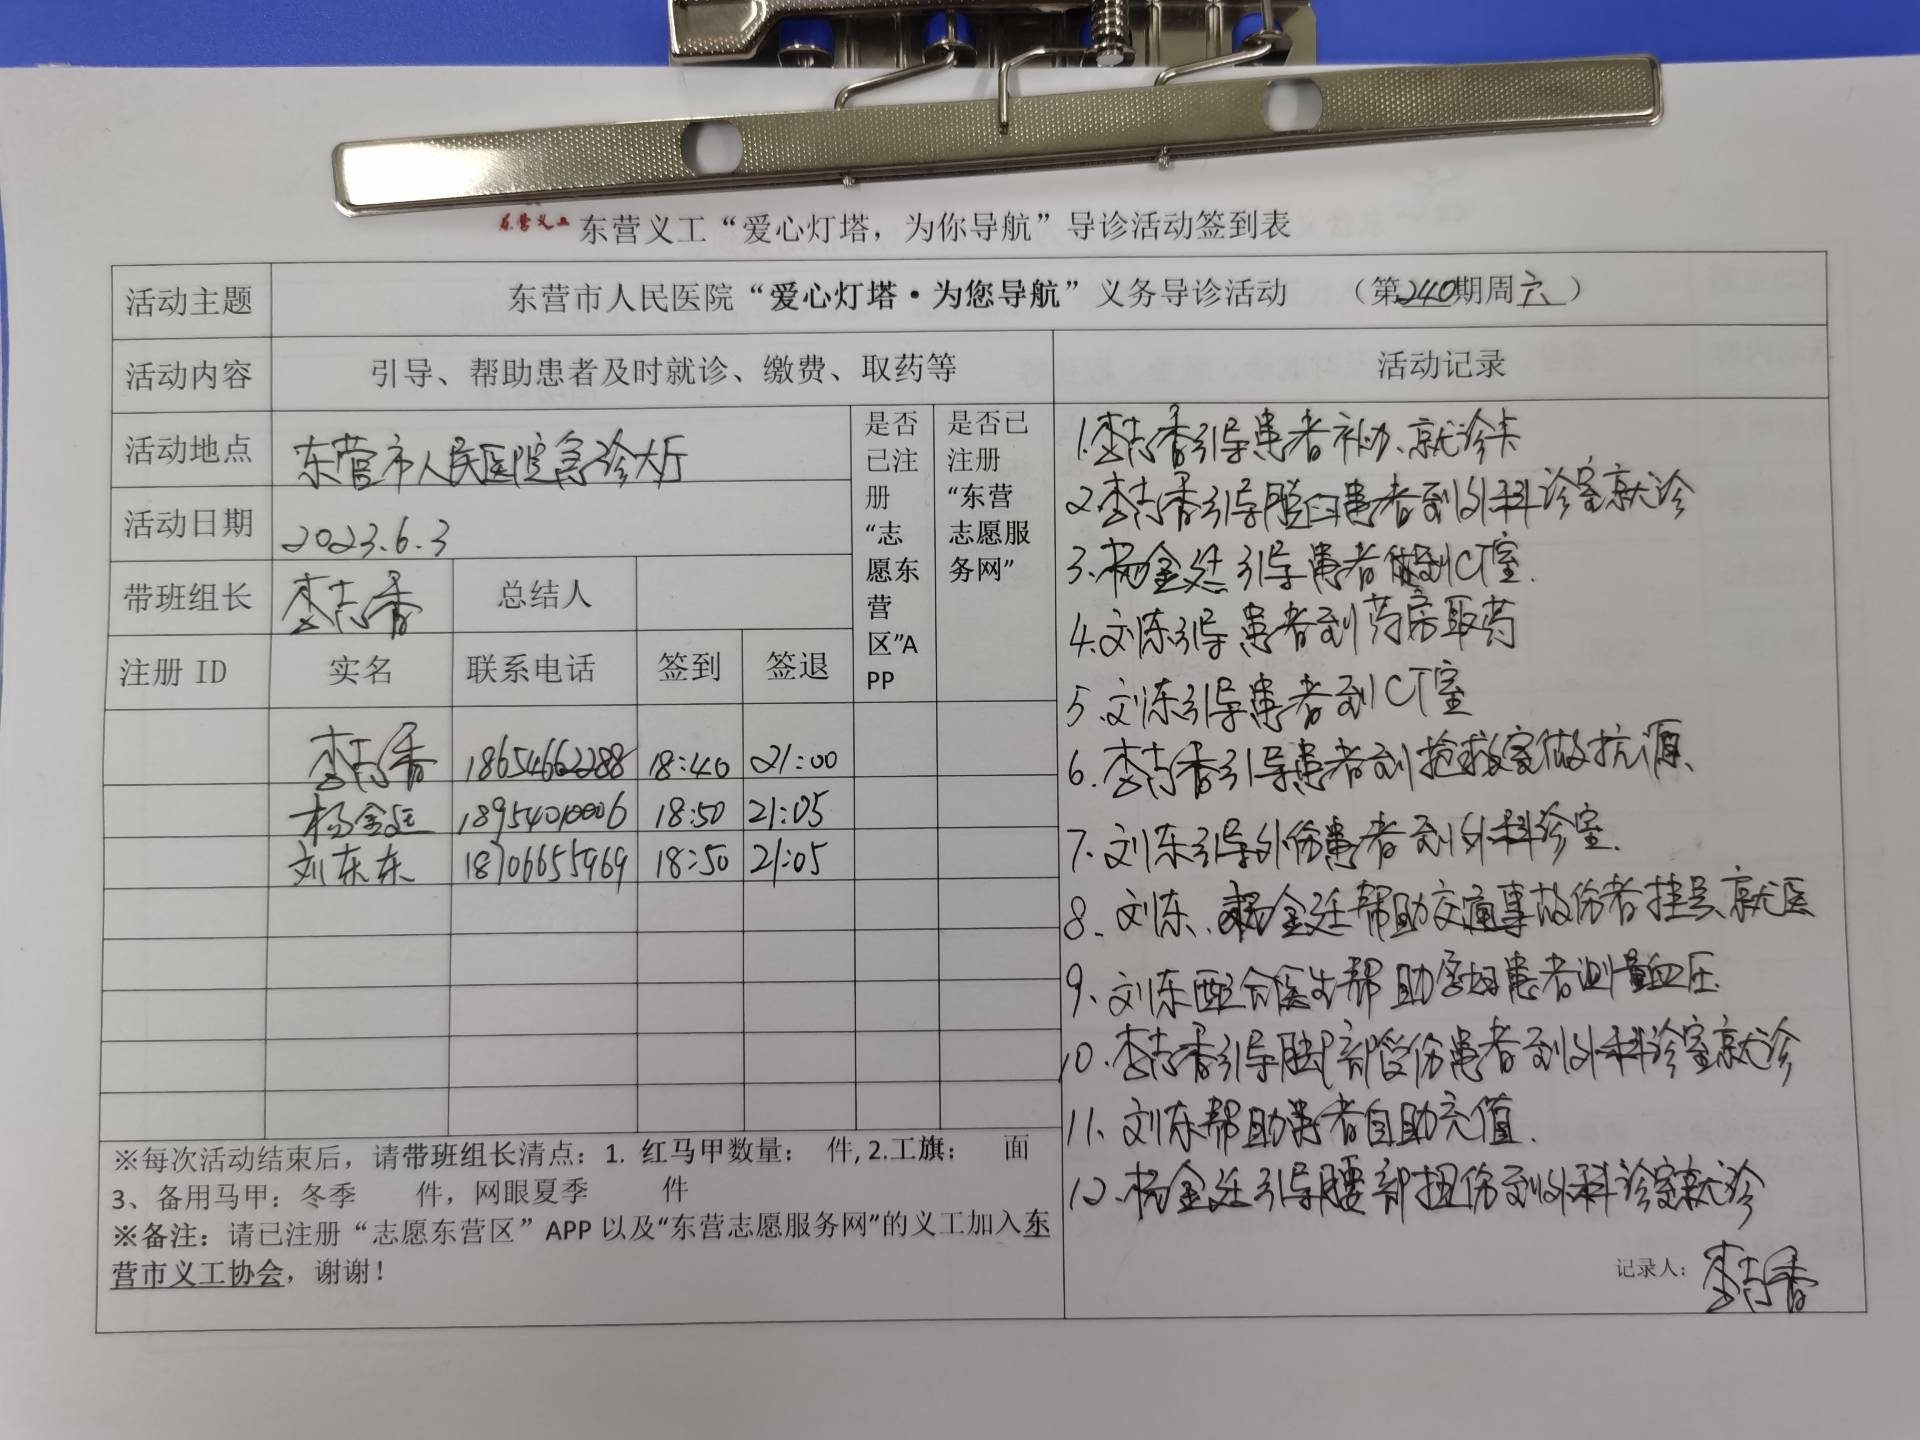 东营义工 东营义工“爱心灯塔，为你导航”导诊活动签到表
活动主题 东营市人民医院“爱心灯塔·为您导航”义务导诊活动 （第240期周六）
活动内容 引导、帮助患者及时就诊、缴费、取药等 活动记录
活动地点 东营市人民医院急诊大厅
活动日期 2023.6.3
带班组长 李志香 总结人
是否
已注
册
“志
愿东
营
区”A
PP
是否已
注册
“东营
志愿服
务网”
注册 ID 实名 联系电话 签到 签退
李志香 18654662288 18:40 21:00
杨金廷 18954010006 18:50 21:05
刘东东 18706655969 18:50 21:05
※每次活动结束后，请带班组长清点：1. 红马甲数量： 件, 2.工旗： 面
3、备用马甲：冬季 件，网眼夏季 件
※备注：请已注册“志愿东营区”APP 以及“东营志愿服务网”的义工加入东
营市义工协会，谢谢！
1.李志香引导患者补办就诊卡
2.李志香引导脱臼患者到外科诊室就诊
3.杨金廷引导患者到CT室.
4.刘东引导患者到药房取药
5.刘东引导患者到CT室
6.李志香引导患者到抢救室做抗原、
7.刘东引导外伤患者到外科诊室.
8、刘东、杨金廷帮助交通事故伤者挂号、就医
9、刘东配合医生帮助孕妇患者测量血压.
10.李志香引导腿部受伤患者到外科诊室就诊
11、刘东帮助患者自助充值.
12.杨金廷引导腰部扭伤到外科诊室就诊
记录人：李志香